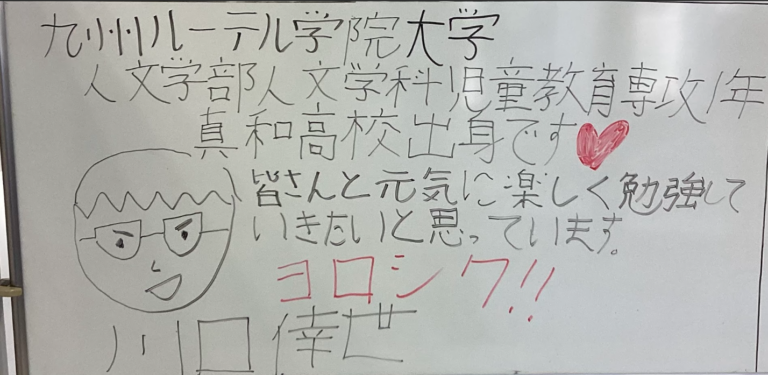 九州ルーテル学院大学
人文学部人文学科児童教育専攻1年
真和高校出身です
皆さんと元気に楽しく勉強して
いきたいと思っています。
ヨロシク!!
川口倖世